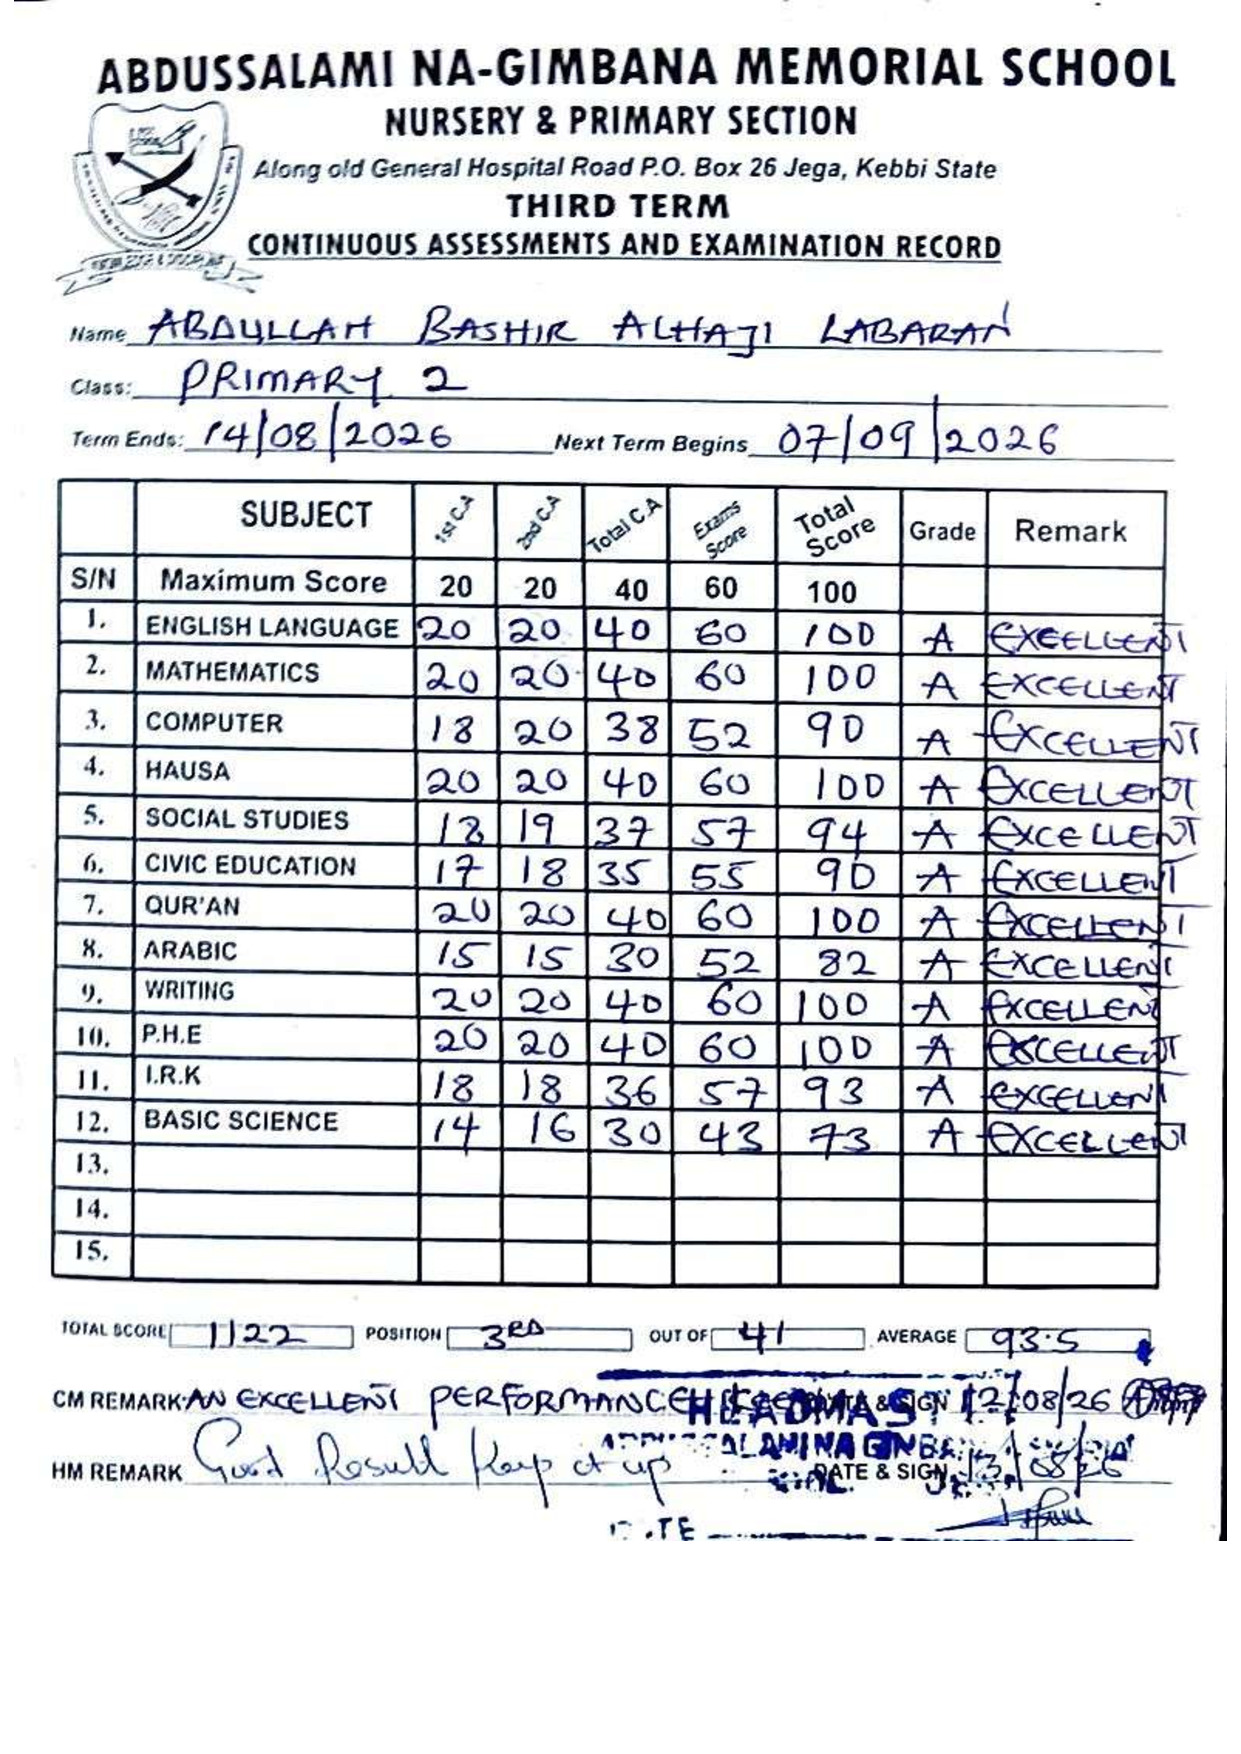 ABDUSSALAMI NA-GIMBANA MEMORIAL SCHOOL
NURSERY & PRIMARY SECTION
Along old General Hospital Road P.O. Box 26 Jega, Kebbi State
THIRD TERM
CONTINUOUS ASSESSMENTS AND EXAMINATION RECORD
Name ABDULLAH BASHIR ALHAJI LABARAN
Class: PRIMARY 2
Term Ends: 14/08/2026 Next Term Begins 07/09/2026
SUBJECT 1st C.A 2nd C.A Total C.A Exams Score Total Score Grade Remark
S/N Maximum Score 20 20 40 60 100
1. ENGLISH LANGUAGE 20 20 40 60 100 A EXCELLENT
2. MATHEMATICS 20 20 40 60 100 A EXCELLENT
3. COMPUTER 18 20 38 52 90 A EXCELLENT
4. HAUSA 20 20 40 60 100 A EXCELLENT
5. SOCIAL STUDIES 18 19 37 57 94 A EXCELLENT
6. CIVIC EDUCATION 17 18 35 55 90 A EXCELLENT
7. QUR'AN 20 20 40 60 100 A EXCELLENT
8. ARABIC 15 15 30 52 82 A EXCELLENT
9. WRITING 20 20 40 60 100 A EXCELLENT
10. P.H.E 20 20 40 60 100 A EXCELLENT
11. I.R.K 18 18 36 57 93 A EXCELLENT
12. BASIC SCIENCE 14 16 30 43 73 A EXCELLENT
13.
14.
15.
TOTAL SCORE 1122 POSITION 3RD OUT OF 41 AVERAGE 93.5
CM REMARK AN EXCELLENT PERFORMANCE & SIGN 12/08/26
HM REMARK Good Result Keep it up DATE & SIGN 13/08/26